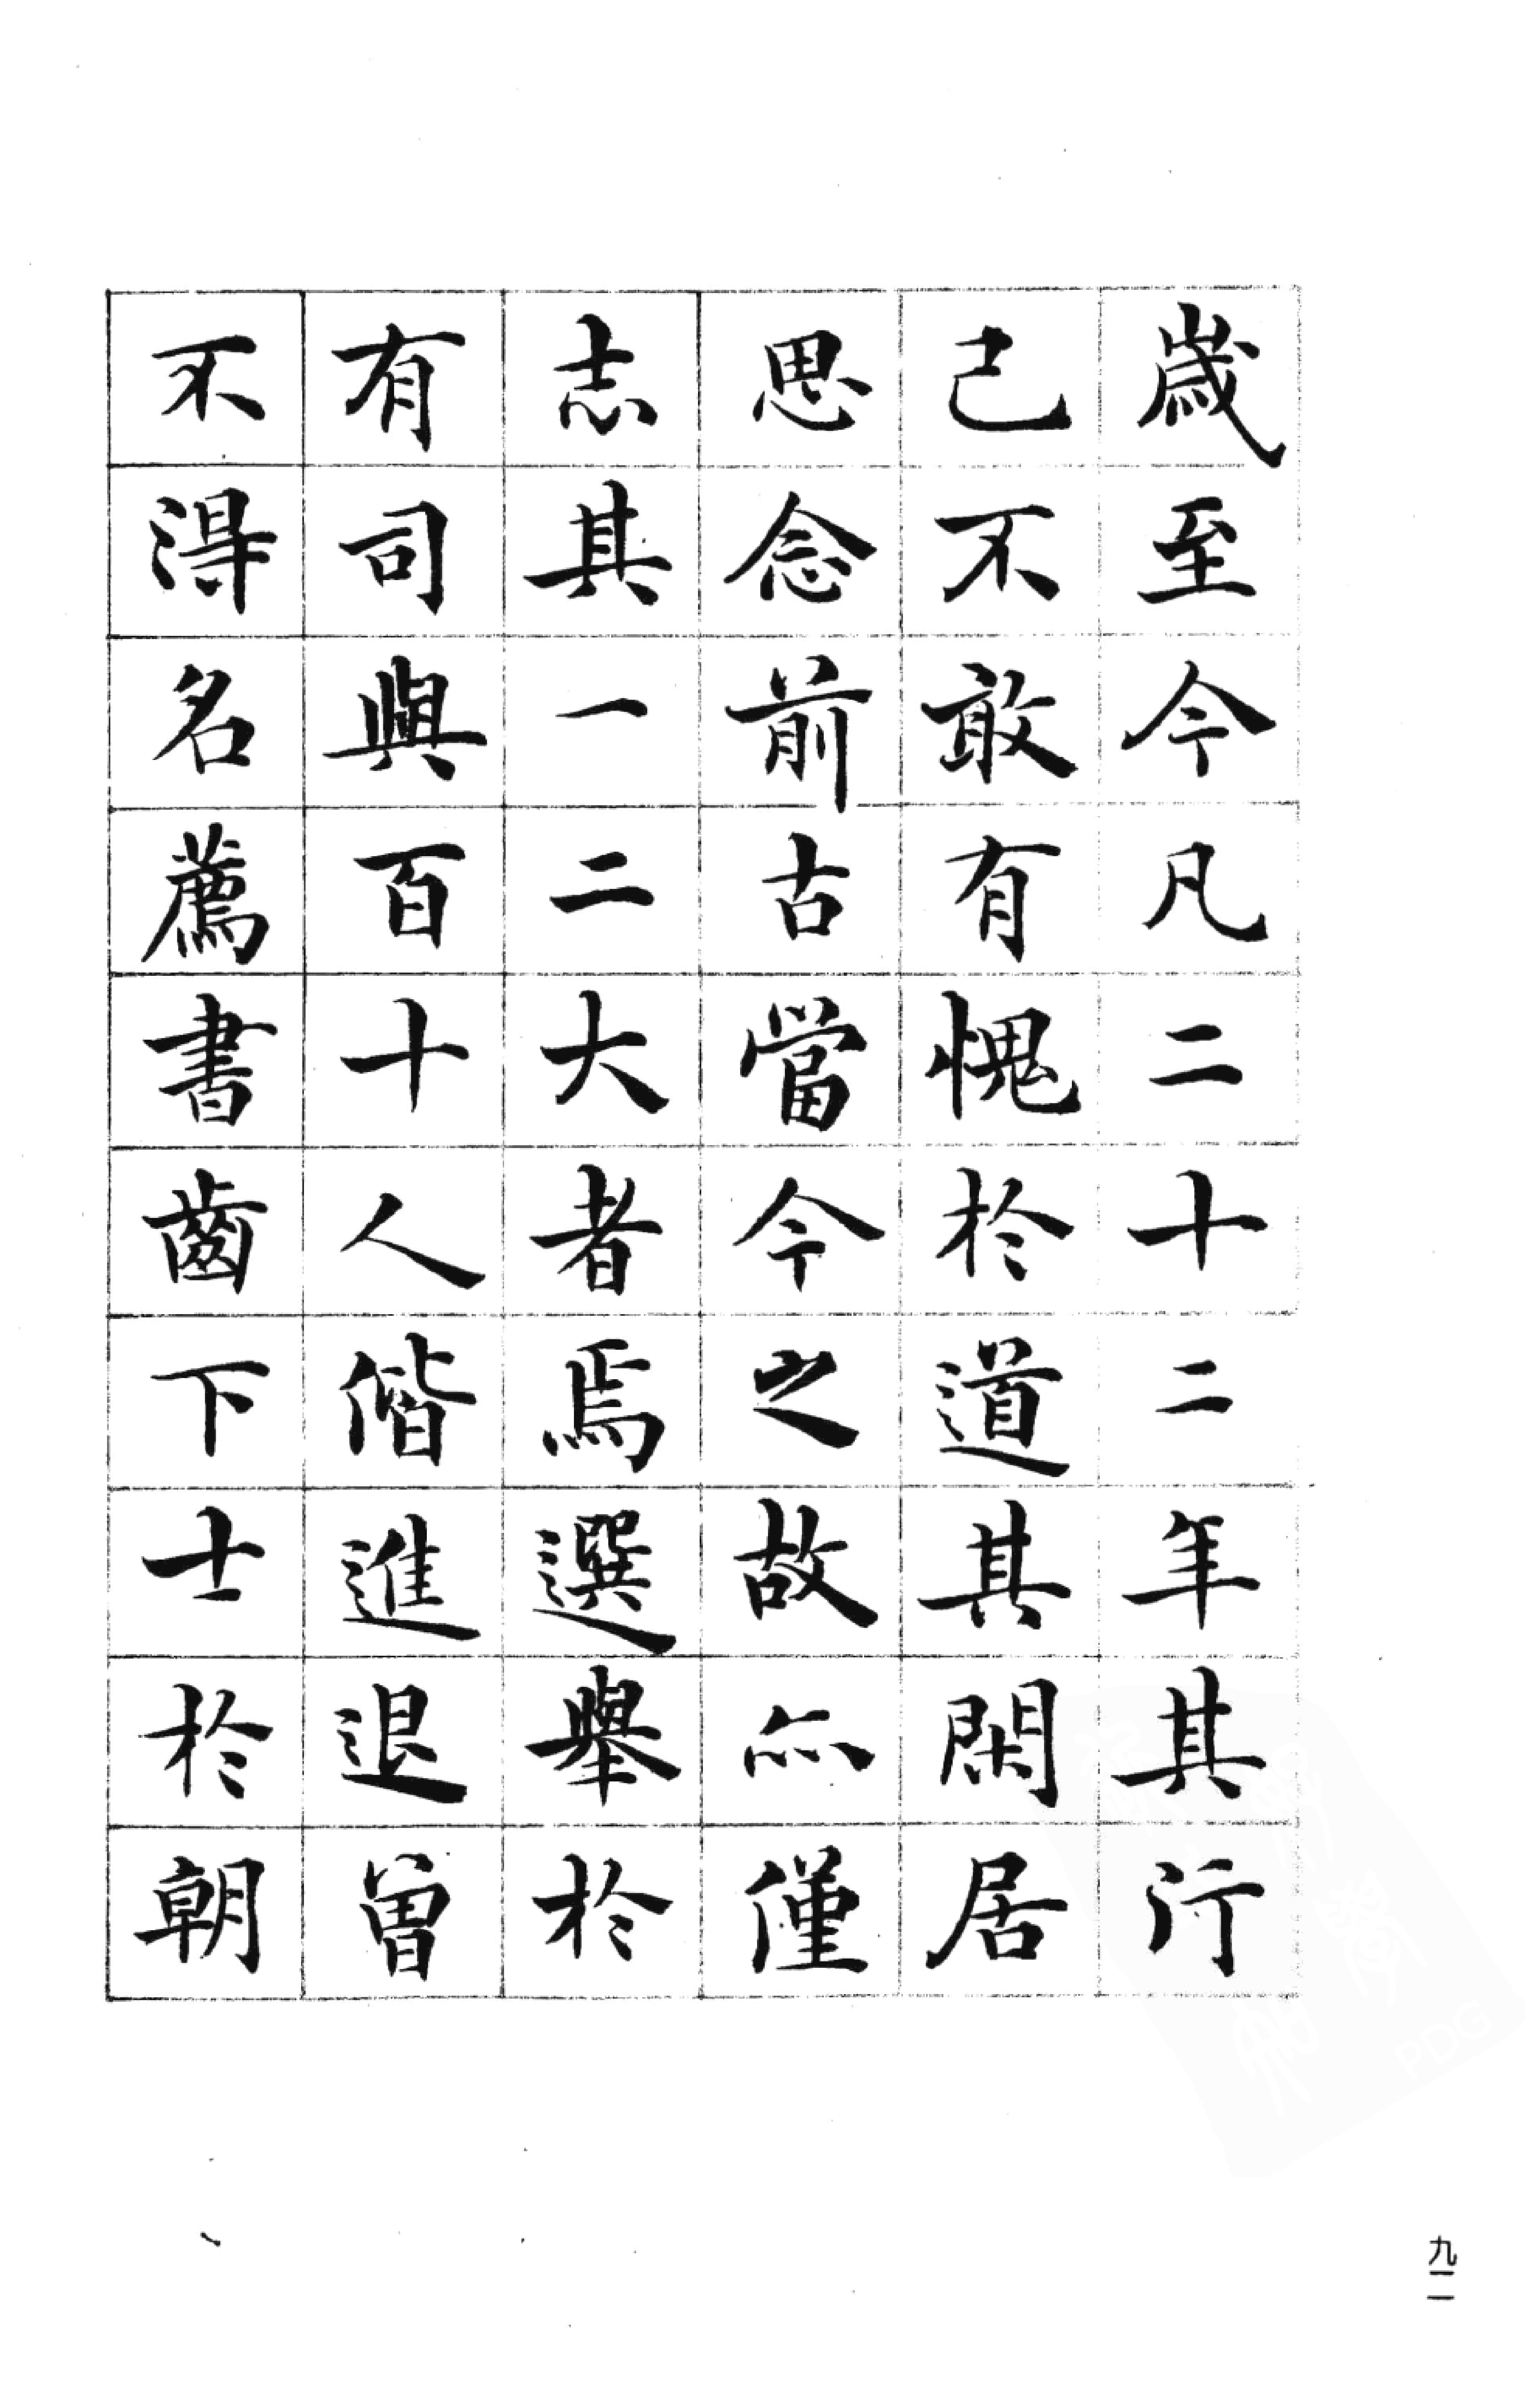 歲至今凡二十二年其行
己不敢有愧於道其閑居
思念前古當今之故亦僅
志其一二大者焉選舉於
有司與百十人偕進退曾
不得名薦書齒下士於朝
九二